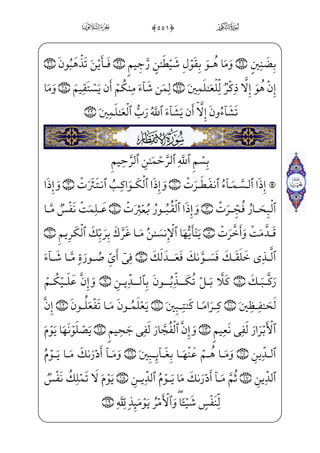 بِضَنِينٍ ۝ وَمَا هُوَ بِقَوْلِ شَيْطَٰنٍ رَّجِيمٍ ۝ فَأَيْنَ تَذْهَبُونَ ۝
إِنْ هُوَ إِلَّا ذِكْرٌ لِّلْعَٰلَمِينَ ۝ لِمَن شَآءَ مِنكُمْ أَن يَسْتَقِيمَ ۝ وَمَا
تَشَآءُونَ إِلَّآ أَن يَشَآءَ ٱللَّهُ رَبُّ ٱلْعَٰلَمِينَ ۝
سُورَةُ الانفطار
بِسْمِ ٱللَّهِ ٱلرَّحْمَٰنِ ٱلرَّحِيمِ
إِذَا ٱلسَّمَآءُ ٱنفَطَرَتْ ۝ وَإِذَا ٱلْكَوَاكِبُ ٱنتَثَرَتْ ۝ وَإِذَا
ٱلْبِحَارُ فُجِّرَتْ ۝ وَإِذَا ٱلْقُبُورُ بُعْثِرَتْ ۝ عَلِمَتْ نَفْسٌ مَّا
قَدَّمَتْ وَأَخَّرَتْ ۝ يَٰٓأَيُّهَا ٱلْإِنسَٰنُ مَا غَرَّكَ بِرَبِّكَ ٱلْكَرِيمِ ۝
ٱلَّذِى خَلَقَكَ فَسَوَّىٰكَ فَعَدَلَكَ ۝ فِىٓ أَىِّ صُورَةٍ مَّا شَآءَ
رَكَّبَكَ ۝ كَلَّا بَلْ تُكَذِّبُونَ بِٱلدِّينِ ۝ وَإِنَّ عَلَيْكُمْ
لَحَٰفِظِينَ ۝ كِرَامًا كَٰتِبِينَ ۝ يَعْلَمُونَ مَا تَفْعَلُونَ ۝ إِنَّ
ٱلْأَبْرَارَ لَفِى نَعِيمٍ ۝ وَإِنَّ ٱلْفُجَّارَ لَفِى جَحِيمٍ ۝ يَصْلَوْنَهَا يَوْمَ
ٱلدِّينِ ۝ وَمَا هُمْ عَنْهَا بِغَآئِبِينَ ۝ وَمَآ أَدْرَىٰكَ مَا يَوْمُ
ٱلدِّينِ ۝ ثُمَّ مَآ أَدْرَىٰكَ مَا يَوْمُ ٱلدِّينِ ۝ يَوْمَ لَا تَمْلِكُ نَفْسٌ
لِّنَفْسٍ شَيْـًٔا ۖ وَٱلْأَمْرُ يَوْمَئِذٍ لِّلَّهِ ۝